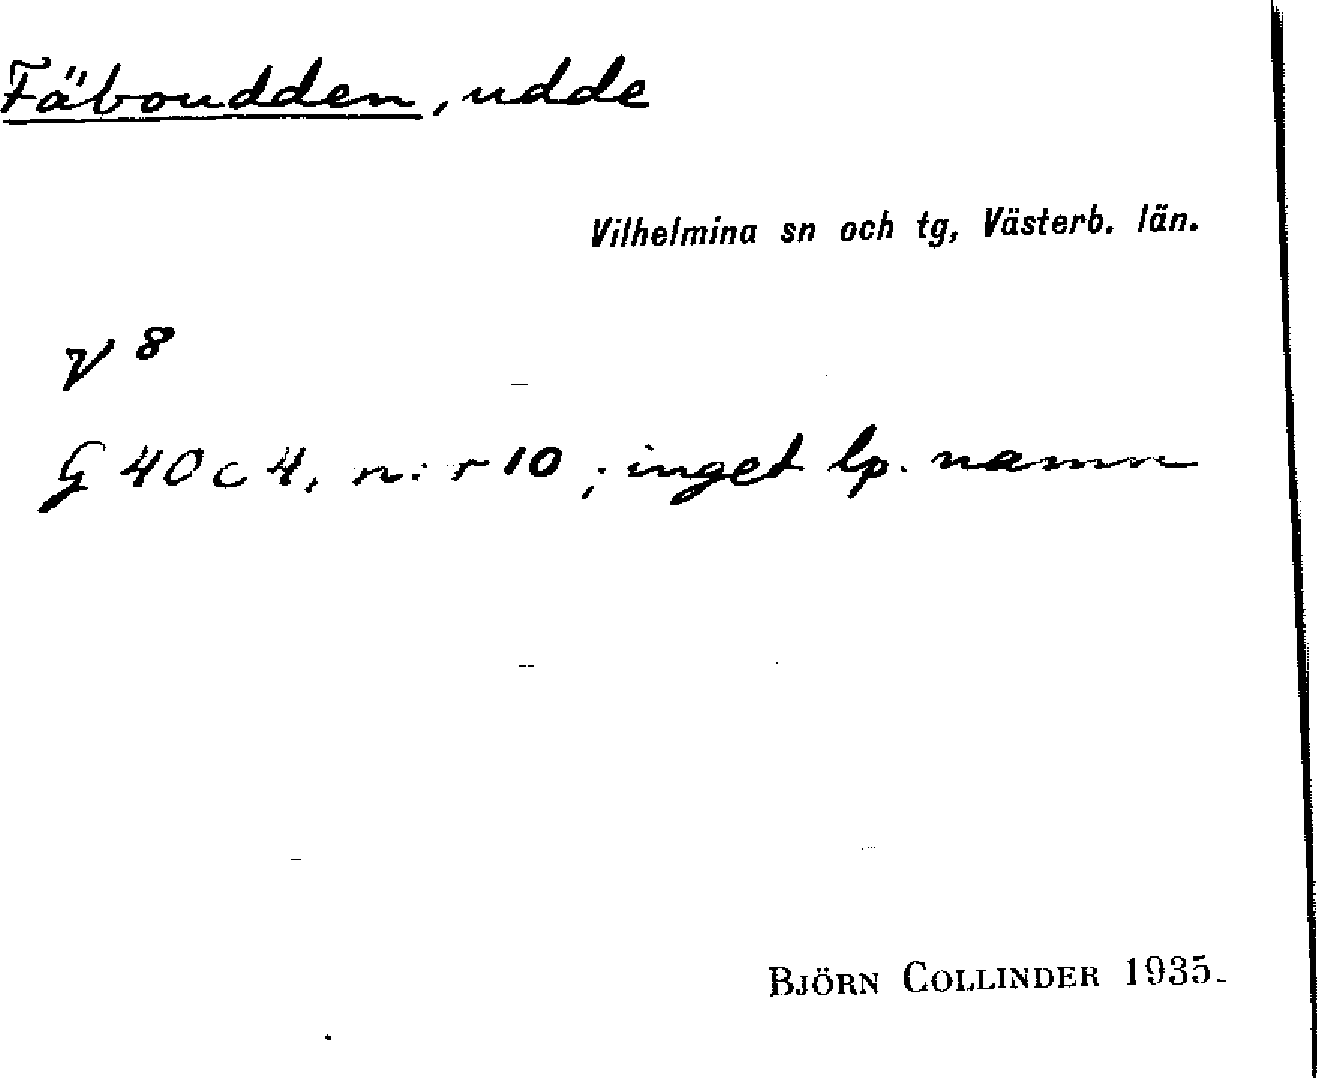 Fäboudden, udde
Vilhelmina sn och tg, Västerb. län.
V 8
G 40 c 4, n:r 10 ; inget lp. namn
BJÖRN COLLINDER 1935.